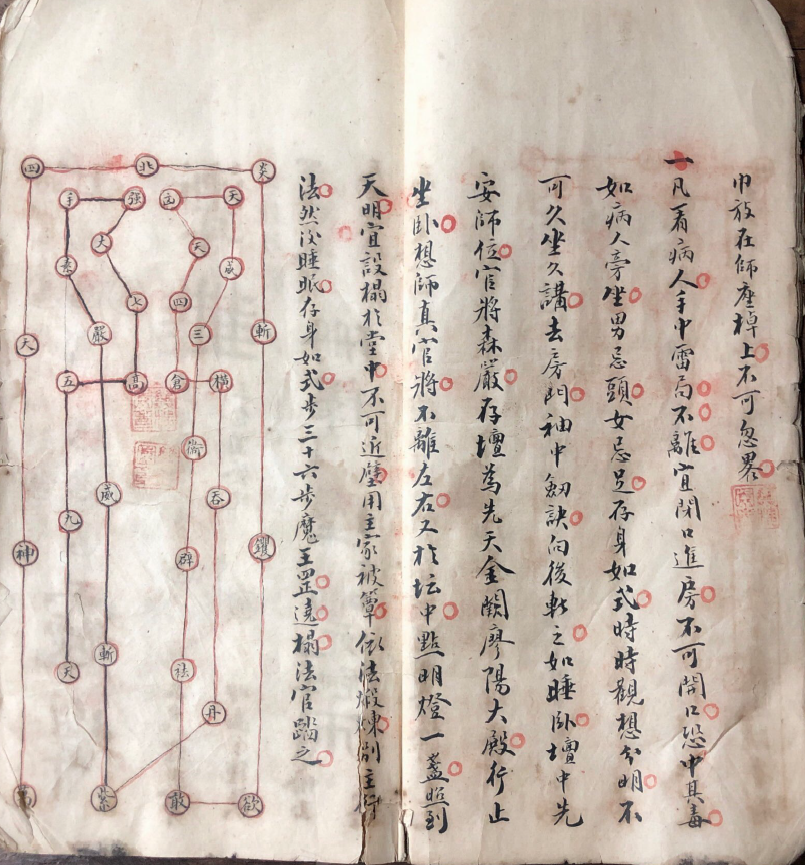 巾放在師座棹上不可忽畧
一凡看病人手中雷局不離宜閉口進房不可開口恐中其毒
如病人旁坐男忌頭女忌足存身如式時時觀想分明不
可久坐久講去房門袖中劒訣向後斬之如睡卧壇中先
安師位官將森嚴存壇為先天金闕廖陽大殿行止
坐卧想師真官將不離左右又於坛中點明燈一盞照到
天明宜設榻於堂中不可近壁用主家被簟依法煅煉
法然後睡眠存身如式步三十六步魔王罡遶榻法官踏之
炎
北
四
天
强
手
大
天
威
七
四
三
嚴
斬
大
横
倉
高
五
衙
吞
威
九
鑊
群
神
斬
祛
天
丹
欲
敢
紫